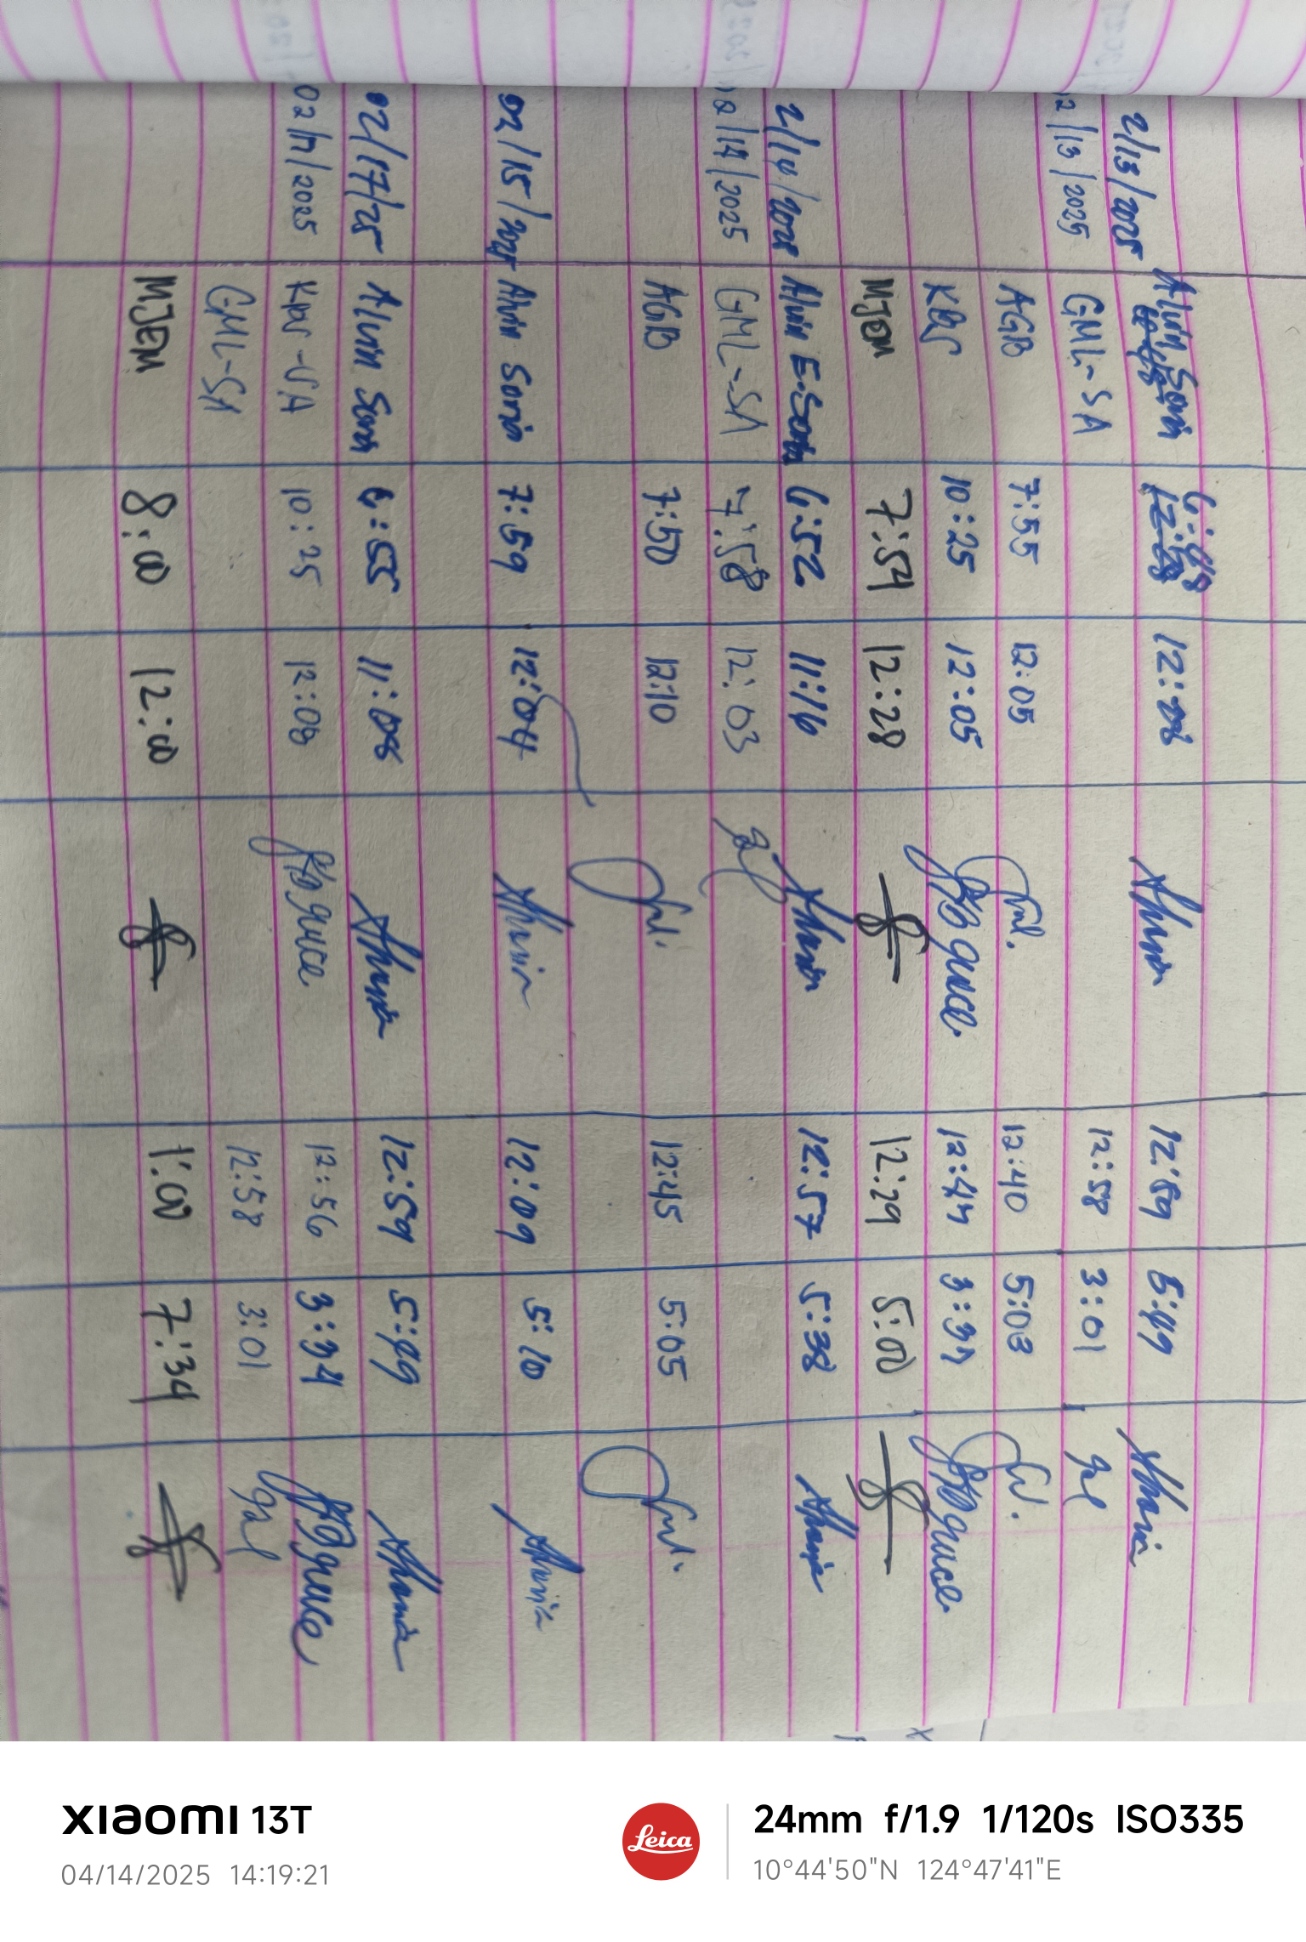 2/13/2025 Alvin Soria 6:48 12:08 12:59 5:49
02/13/2025 GML-SA 12:58 3:01
AGB 7:55 12:05 12:40 5:03
KBS 10:25 12:05 12:44 3:34
MJEM 7:54 12:28 12:29 5:00
2/14/2025 Alvin E. Soria 6:52 11:16 12:57 5:38
02/14/2025 GML-SA 7:58 12:03
AGB 7:50 12:10 12:45 5:05
02/15/2025 Alvin Soria 7:59 12:04 12:09 5:10
02/17/25 Alvin Soria 6:55 11:08 12:59 5:49
02/17/2025 10:25 12:03 12:56 3:34
GML-SA 12:58 3:01
MJEM 8:00 12:00 1:00 7:34
XIAOMI 13T
04/14/2025 14:19:21
Leica
24mm f/1.9 1/120s ISO335
10°44'50"N 124°47'41"E